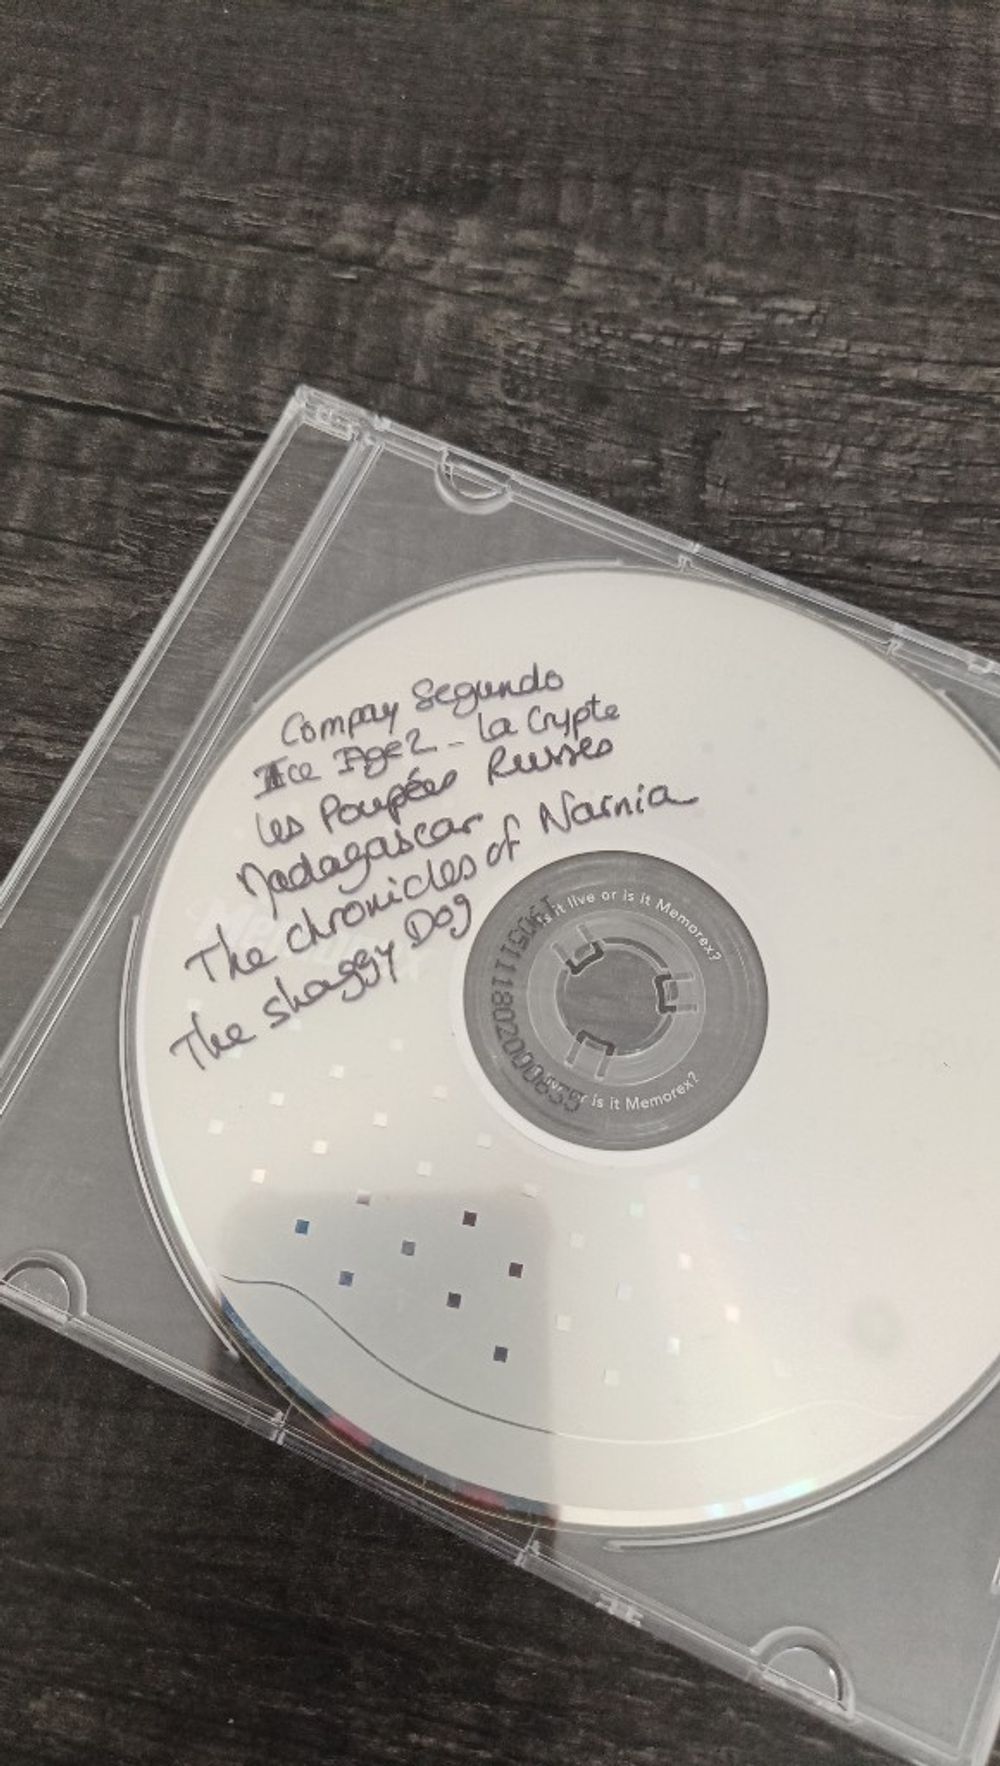 Compay Segundo
Ice Age 2 - La Crypte
Les Poupées Russes
Madagascar
The chronicles of Narnia
The shaggy Dog
is it live or is it Memorex?
or is it Memorex?